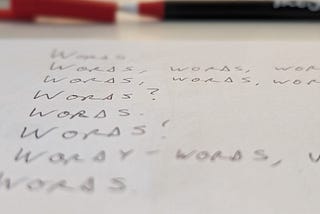 WORDS
WORDS, WORDS, WOR
WORDS, WORDS, WOR
WORDS?
WORDS.
WORDS!
WORDY - WORDS, W
WORDS